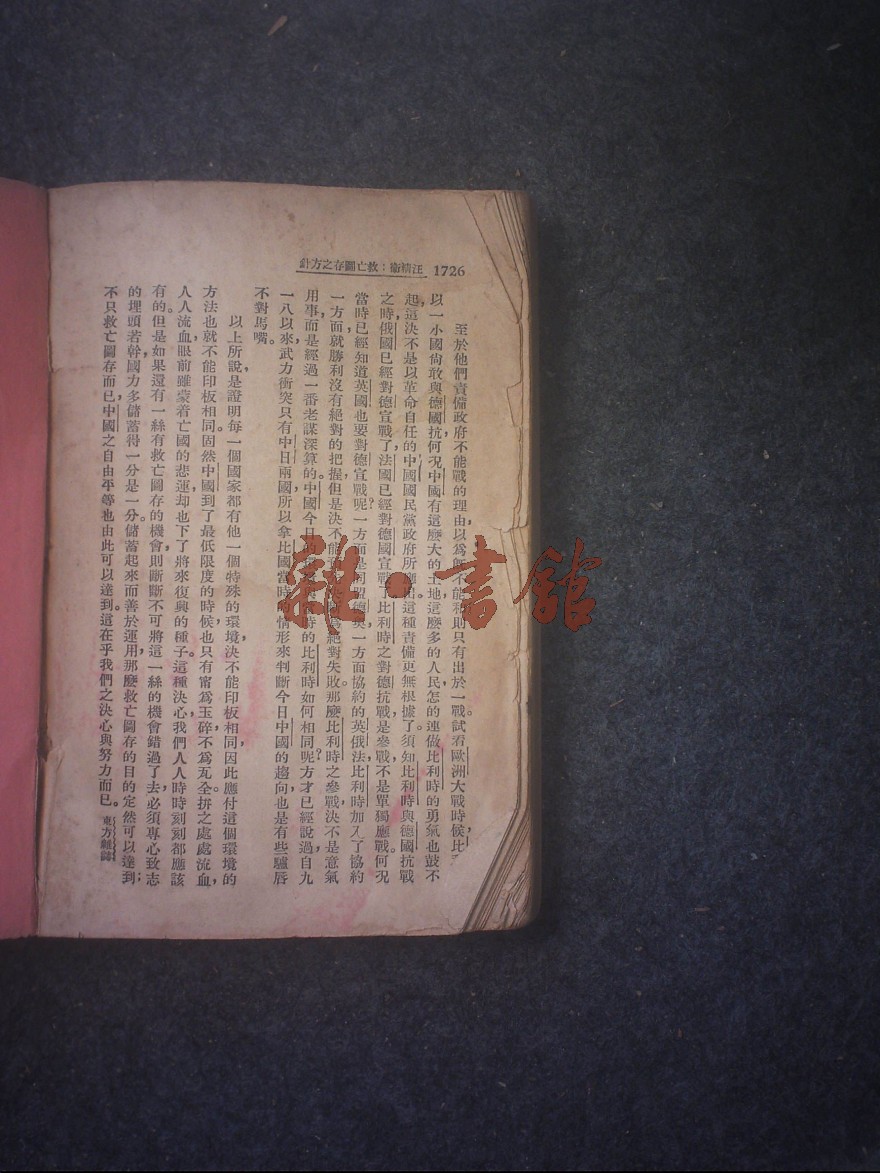 1726 汪精衞：救亡圖存之方針
至於他們責備政府不能戰的理由，以爲旣不能和則只有出於一戰。試看歐洲大戰時候，比
以一小國尙敢與德國抗，何況中國有這麽大的土地，這麽多的人民，怎的連做比利時的勇氣也鼓不
起，這決不是以革命自任的中國國民黨政府所應這種責備更無根據了。須知比利時與德國抗戰
之時，俄國已經對德宣戰了，法國已經對德國宣戰比利時之對德抗戰，是參戰，不是單獨應戰。何況
當時已經知道英國也要對德宣戰呢？一方面是德奥，一方面協約的英俄法，比利時加入了協約
一方面，就勝利沒有絕對的把握，但是決不能絕對失敗。那麽比利時之參戰，決不是意氣
用事，而是經過一番老謀深算的。中國今日的時的比利時如何相同呢？方才已經說過，自九
一八以來，武力衝突只有中日兩國，所以拿比國當時的情形來判斷今日中國的趨向，也是有些驢唇
不對馬嘴。
以上所說，是證明每一個國家都有他一個特殊的環境，決不能印板相同，因此應付這個環境的
方法也就不能印板相同。固然中國到了最低限度的時候，也只有寧爲玉碎，不爲瓦全，拚之處處流血，
人人流血，眼前雖蒙着亡國的悲運，却也下了將來復興的種子。這種決心，我們人人時時刻刻都應該
有的。但是如果還有一絲有救亡圖存的機會，則斷斷不可將這一絲的機會錯過了去，必須專心致志
的埋頭若幹，國力多儲蓄得一分是一分，儲蓄起來而善於運用，那麽救亡圖存的目的定然可以達到；
不只救亡圖存而已，中國之自由平等也由此可以達到。這在乎我們之決心與努力而已。 東方雜誌
雜·書舘